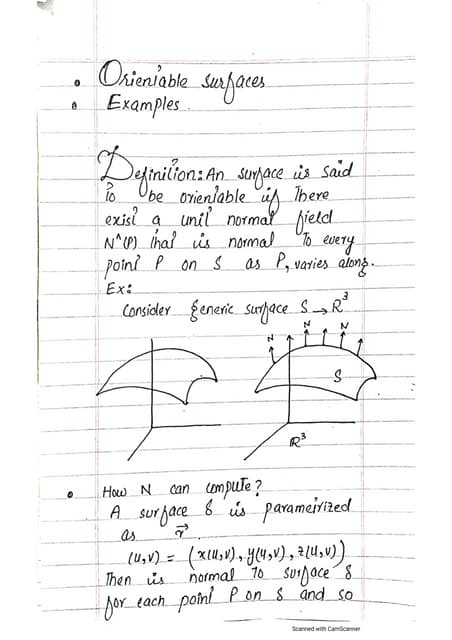 Orientable surfaces
Examples.
Definition: An surface is said
to be orientable if there
exist a unit normal field
N^(P) that is normal to every
point P on S as P, varies along.
Ex:
Consider generic surface S → R³
N N N
S
R³
How N can compute?
A surface S is parametrized
as r⃗
(u,v) = (x(u,v), y(u,v), z(u,v))
Then is normal to surface S
for each point P on S and so
Scanned with CamScanner